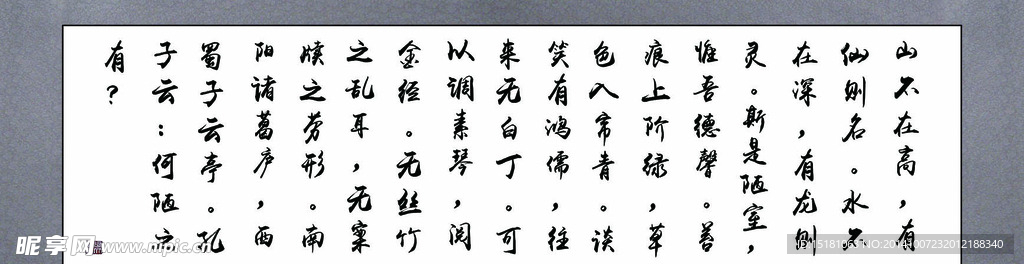 山不在高，有
仙则名。水不
在深，有龙则
灵。斯是陋室，
惟吾德馨。善
痕上阶绿，草
色入帘青。谈
笑有鸿儒，往
来无白丁。可
以调素琴，阅
金经。无丝竹
之乱耳，无案
牍之劳形。南
阳诸葛庐，西
蜀子云亭。孔
子云：何陋之
有？
昵享网 www.nipic.cn
NO:20141007232012188340